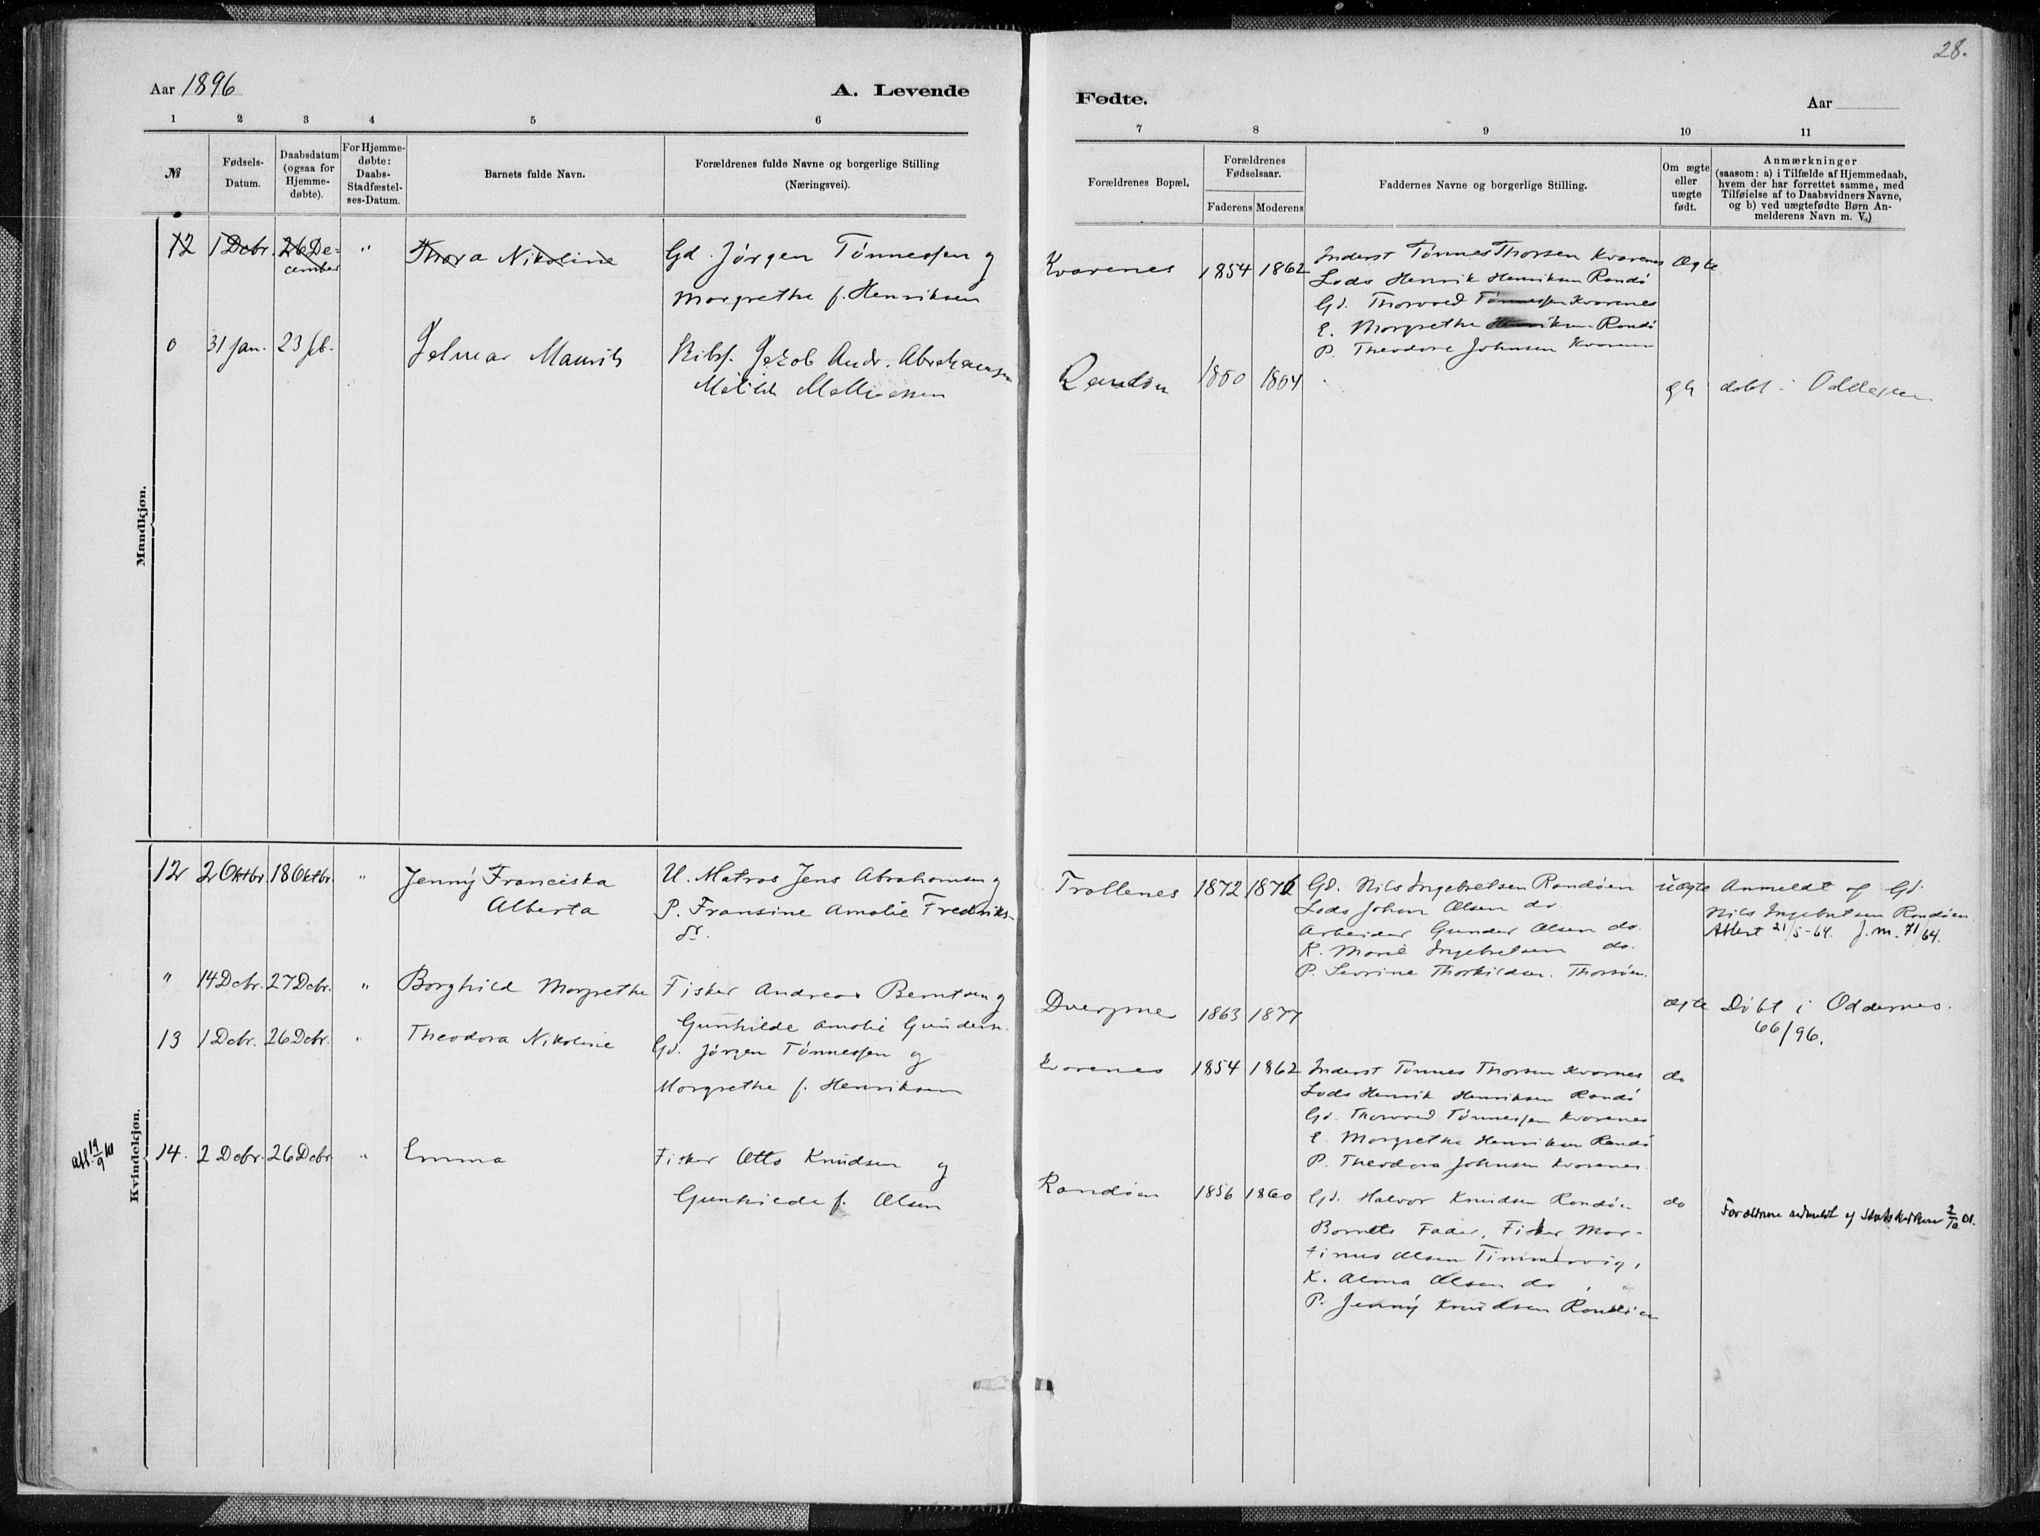 28.
Aar 1896
A. Levende
Fødte.
Aar
1
2
3
4
5
6
7
8
9
10
11
№
Fødsels-
Datum.
Daabsdatum
(ogsaa for
Hjemme-
døbte).
For Hjemme-
døbte:
Daabs-
Stadfæstel-
ses-Datum.
Barnets fulde Navn.
Forældrenes fulde Navne og borgerlige Stilling
(Næringsvei).
Forældrenes Bopæl.
Forældrenes
Fødselsaar.
Faderens
Moderens
Faddernes Navne og borgerlige Stilling.
Om ægte
eller
uægte
født.
Anmærkninger
(saasom: a) i Tilfælde af Hjemmedaab,
hvem der har forrettet samme, med
Tilføielse af to Daabsvidners Navne,
og b) ved uægtefødte Børn An-
melderens Navn m. V.)
Mandkjøn.
12 1 Decbr. 26 De-
cember
"
Thora Nikoline
Gd. Jørgen Tønnessen og
Margrethe f. Henriksen
Kvarenes 1854 1862
Inderst Tønnes Thorsen Kvarenes
Lods Henrik Henriksen Randø
Gd. Thorvald Tønnessen Kvarenes
E. Margrethe Henriksen Randø
P. Theodora Johnsen Kvarenes
Ægte
0 31 Jan. 23 feb.
Hjelmar Maurits
Skibsf. Jakob Andr. Abrahamsen
Matilde Mathiassen
Randøen
døbt i Oddernes
Kvindekjøn.
12 2 Oktbr. 18 Oktbr. "
Jenny Franciska
Alberta
U. Matros Jens Abrahamsen og
P. Fransine Amalie Fredriks-
dr.
Trollenes 1872 1876
Gd. Nils Ingebretsen Randøen
Lods Johan Olsen do.
Arbeider Gunder Olsen do.
K. Marie Ingebretsen do.
P. Severine Thorkildsen. Thorsøen.
uægte
Anmeldt af Gd.
Nils Ingebretsen Randøen.
Attest 21/5-64. J.m. 71/64.
" 14 Decbr. 27 Decbr. "
Borghild Margrethe
Fisker Andreas Berntsen og
Gunhilde Amalie Gunders.
Dvergsnes 1863 1877
ægte
Døbt i Oddernes.
66/96.
13 1 Decbr. 26 Decbr. "
Theodora Nikoline
Gd. Jørgen Tønnessen og
Margrethe f. Henriksen
Kvarenes 1854 1862
Inderst Tønnes Thorsen Kvarnes
Lods Henrik Henriksen Randø
Gd. Thorvald Tønnessen Kvarenes
E. Margrethe Henriksen Randø
P. Theodora Johnsen Kvarenes.
do
14. 2 Decbr. 26 Decbr. "
Emma
Fisker Otto Knudsen og
Gunhilde f. Olsen
Randøen 1856 1860
Gd. Halvor Knudsen Randøen
Barnets Fader, Fisker Mar-
tinus Olsen Timmervig,
K. Alma Olsen do,
P. Jenny Knudsen Randøen
do
Forældrene udmeldt af Statskirken 2/10 01.